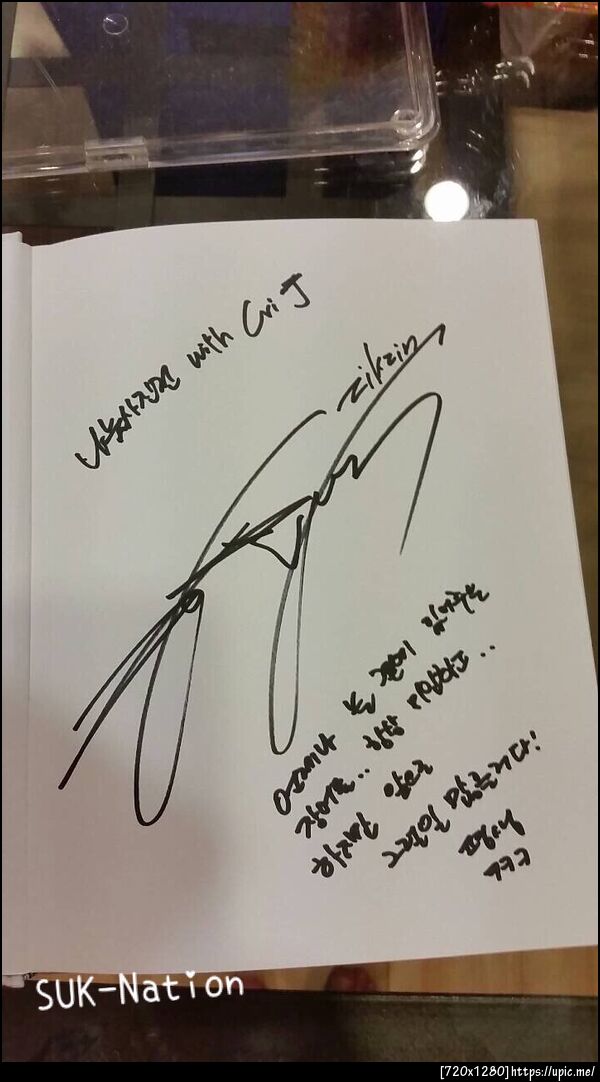 나눔사진전 with Cri J
zikzin
언제나 늘 곁에 있어주는
장어들.. 항상 미안하고..
하지만 앞으로
그런일 많을거다!
평생
ㅋㅋㅋ
SUK-Nation
[720x1280]https://upic.me/